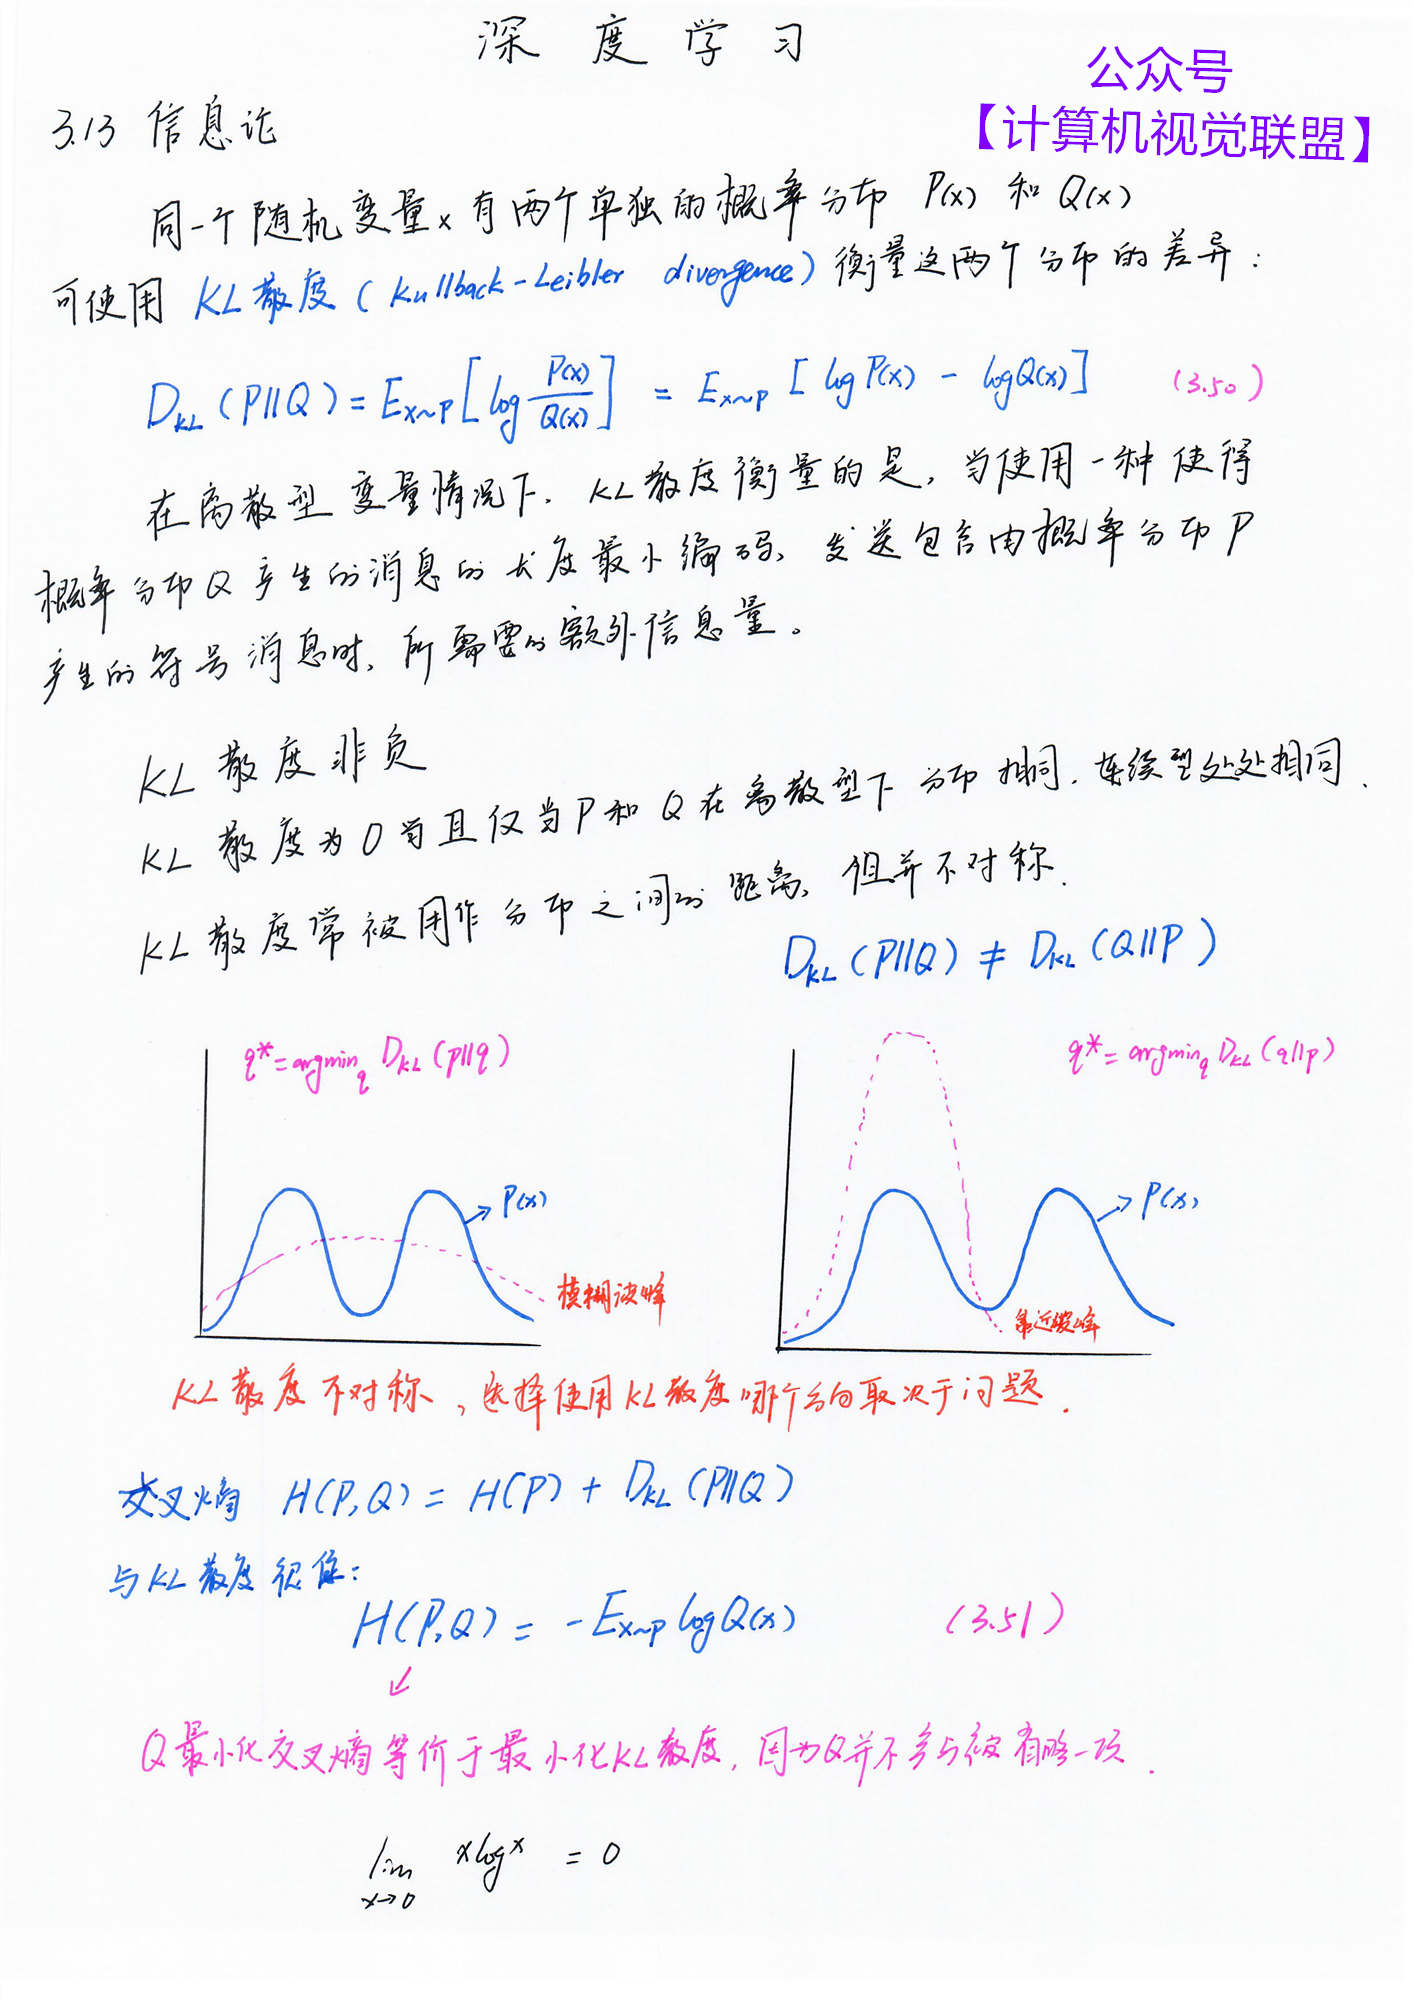 深度学习
公众号
【计算机视觉联盟】
3.13 信息论
同一个随机变量x有两个单独的概率分布 P(x) 和 Q(x)
可使用 KL散度 (Kullback-Leibler divergence) 衡量这两个分布的差异:
D_KL(P||Q) = E_x~P[log P(x)/Q(x)] = E_x~P [log P(x) - log Q(x)] (3.50)
在离散型变量情况下, KL散度衡量的是, 当使用一种使得
概率分布Q产生的消息的长度最小编码, 发送包含由概率分布P
产生的符号消息时, 所需要的额外信息量。
KL散度非负
KL散度为0当且仅当P和Q在离散型下分布相同, 连续型处处相同.
KL散度常被用作分布之间的距离, 但并不对称.
D_KL(P||Q) ≠ D_KL(Q||P)
q* = argmin_q D_KL(p||q)
q* = argmin_q D_KL(q||p)
P(x)
P(x)
模糊波峰
靠近波峰
KL散度不对称, 选择使用KL散度哪个方向取决于问题.
交叉熵 H(P,Q) = H(P) + D_KL(P||Q)
与KL散度很像:
H(P,Q) = -E_x~P log Q(x) (3.51)
↙
Q最小化交叉熵等价于最小化KL散度, 因为Q并不参与被省略一项.
lim x→0 x log x = 0